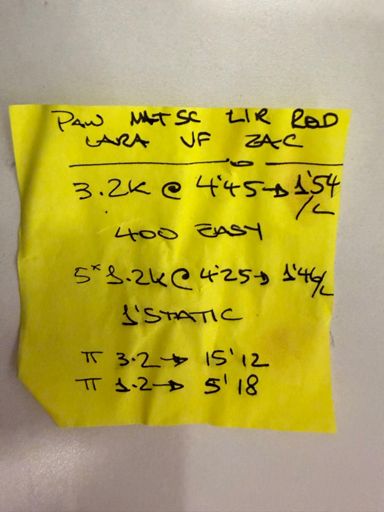 PAW MATSC LIR ROD
LARA VF ZAC
3.2K @ 4'45→1'54
/L
400 EASY
5x 1.2K@ 4'25→ 1'46/L
1'STATIC
π 3.2→ 15'12
π 1.2→ 5'18